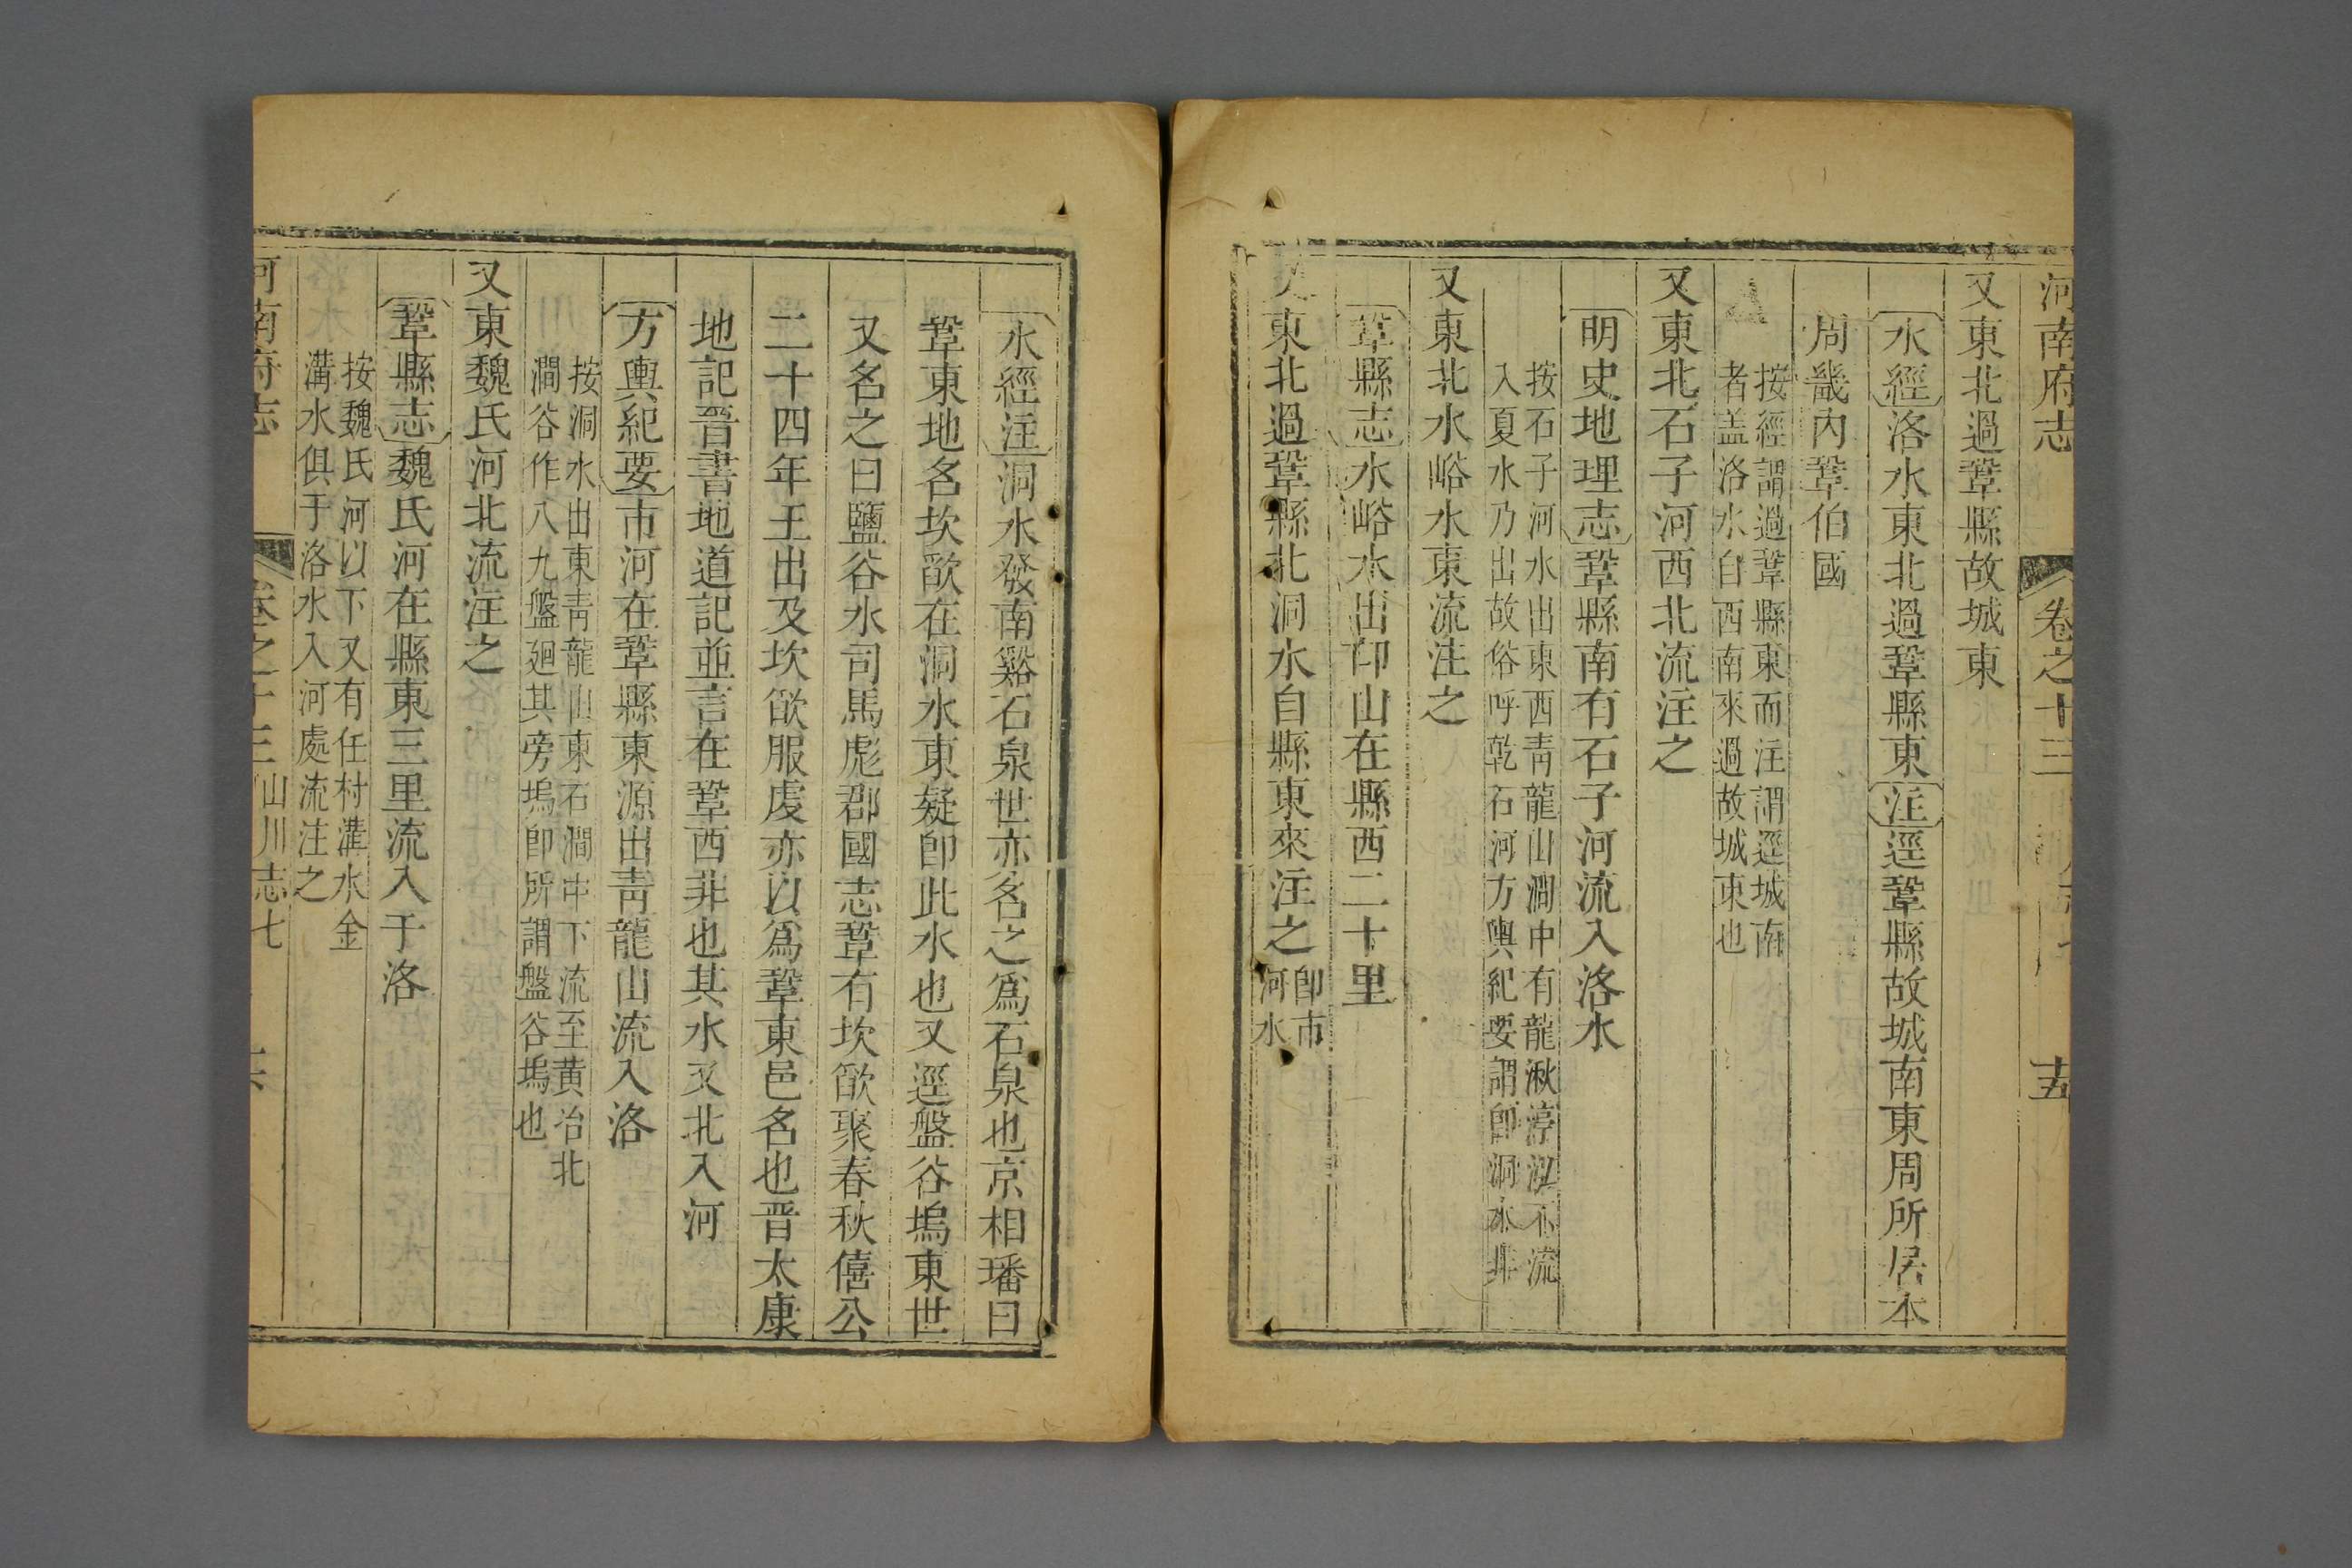 河南府志
卷之十三
五
又東北過鞏縣故城東
水經洛水東北過鞏縣東注逕鞏縣故城南東周所居本
周畿內鞏伯國
按經謂過鞏縣東而注謂逕城南
者盖洛水自西南來過故城東也
又東北石子河西北流注之
明史地理志鞏縣南有石子河流入洛水
按石子河水出東西靑龍山澗中有龍湫渟泓不流
入夏水乃出故俗呼乾石河方輿紀要謂卽洞水非
又東北水峪水東流注之
鞏縣志水峪水出邙山在縣西二十里
又東北過鞏縣北洞水自縣東來注之
卽市
河水
水經注洞水發南谿石泉世亦名之爲石泉也京相璠曰
鞏東地名坎欿在洞水東疑卽此水也又逕盤谷塢東世
又名之曰鹽谷水司馬彪郡國志鞏有坎欿聚春秋僖公
二十四年王出及坎欿服虔亦以爲鞏東邑名也晉太康
地記晉書地道記並言在鞏西非也其水又北入河
方輿紀要市河在鞏縣東源出靑龍山流入洛
按洞水出東靑龍山東石澗中下流至黃冶北
澗谷作八九盤廻其旁塢卽所謂盤谷塢也
又東魏氏河北流注之
鞏縣志魏氏河在縣東三里流入于洛
按魏氏河以下又有任村溝水金
溝水俱于洛水入河處流注之
河南府志
卷之十三
山川志七